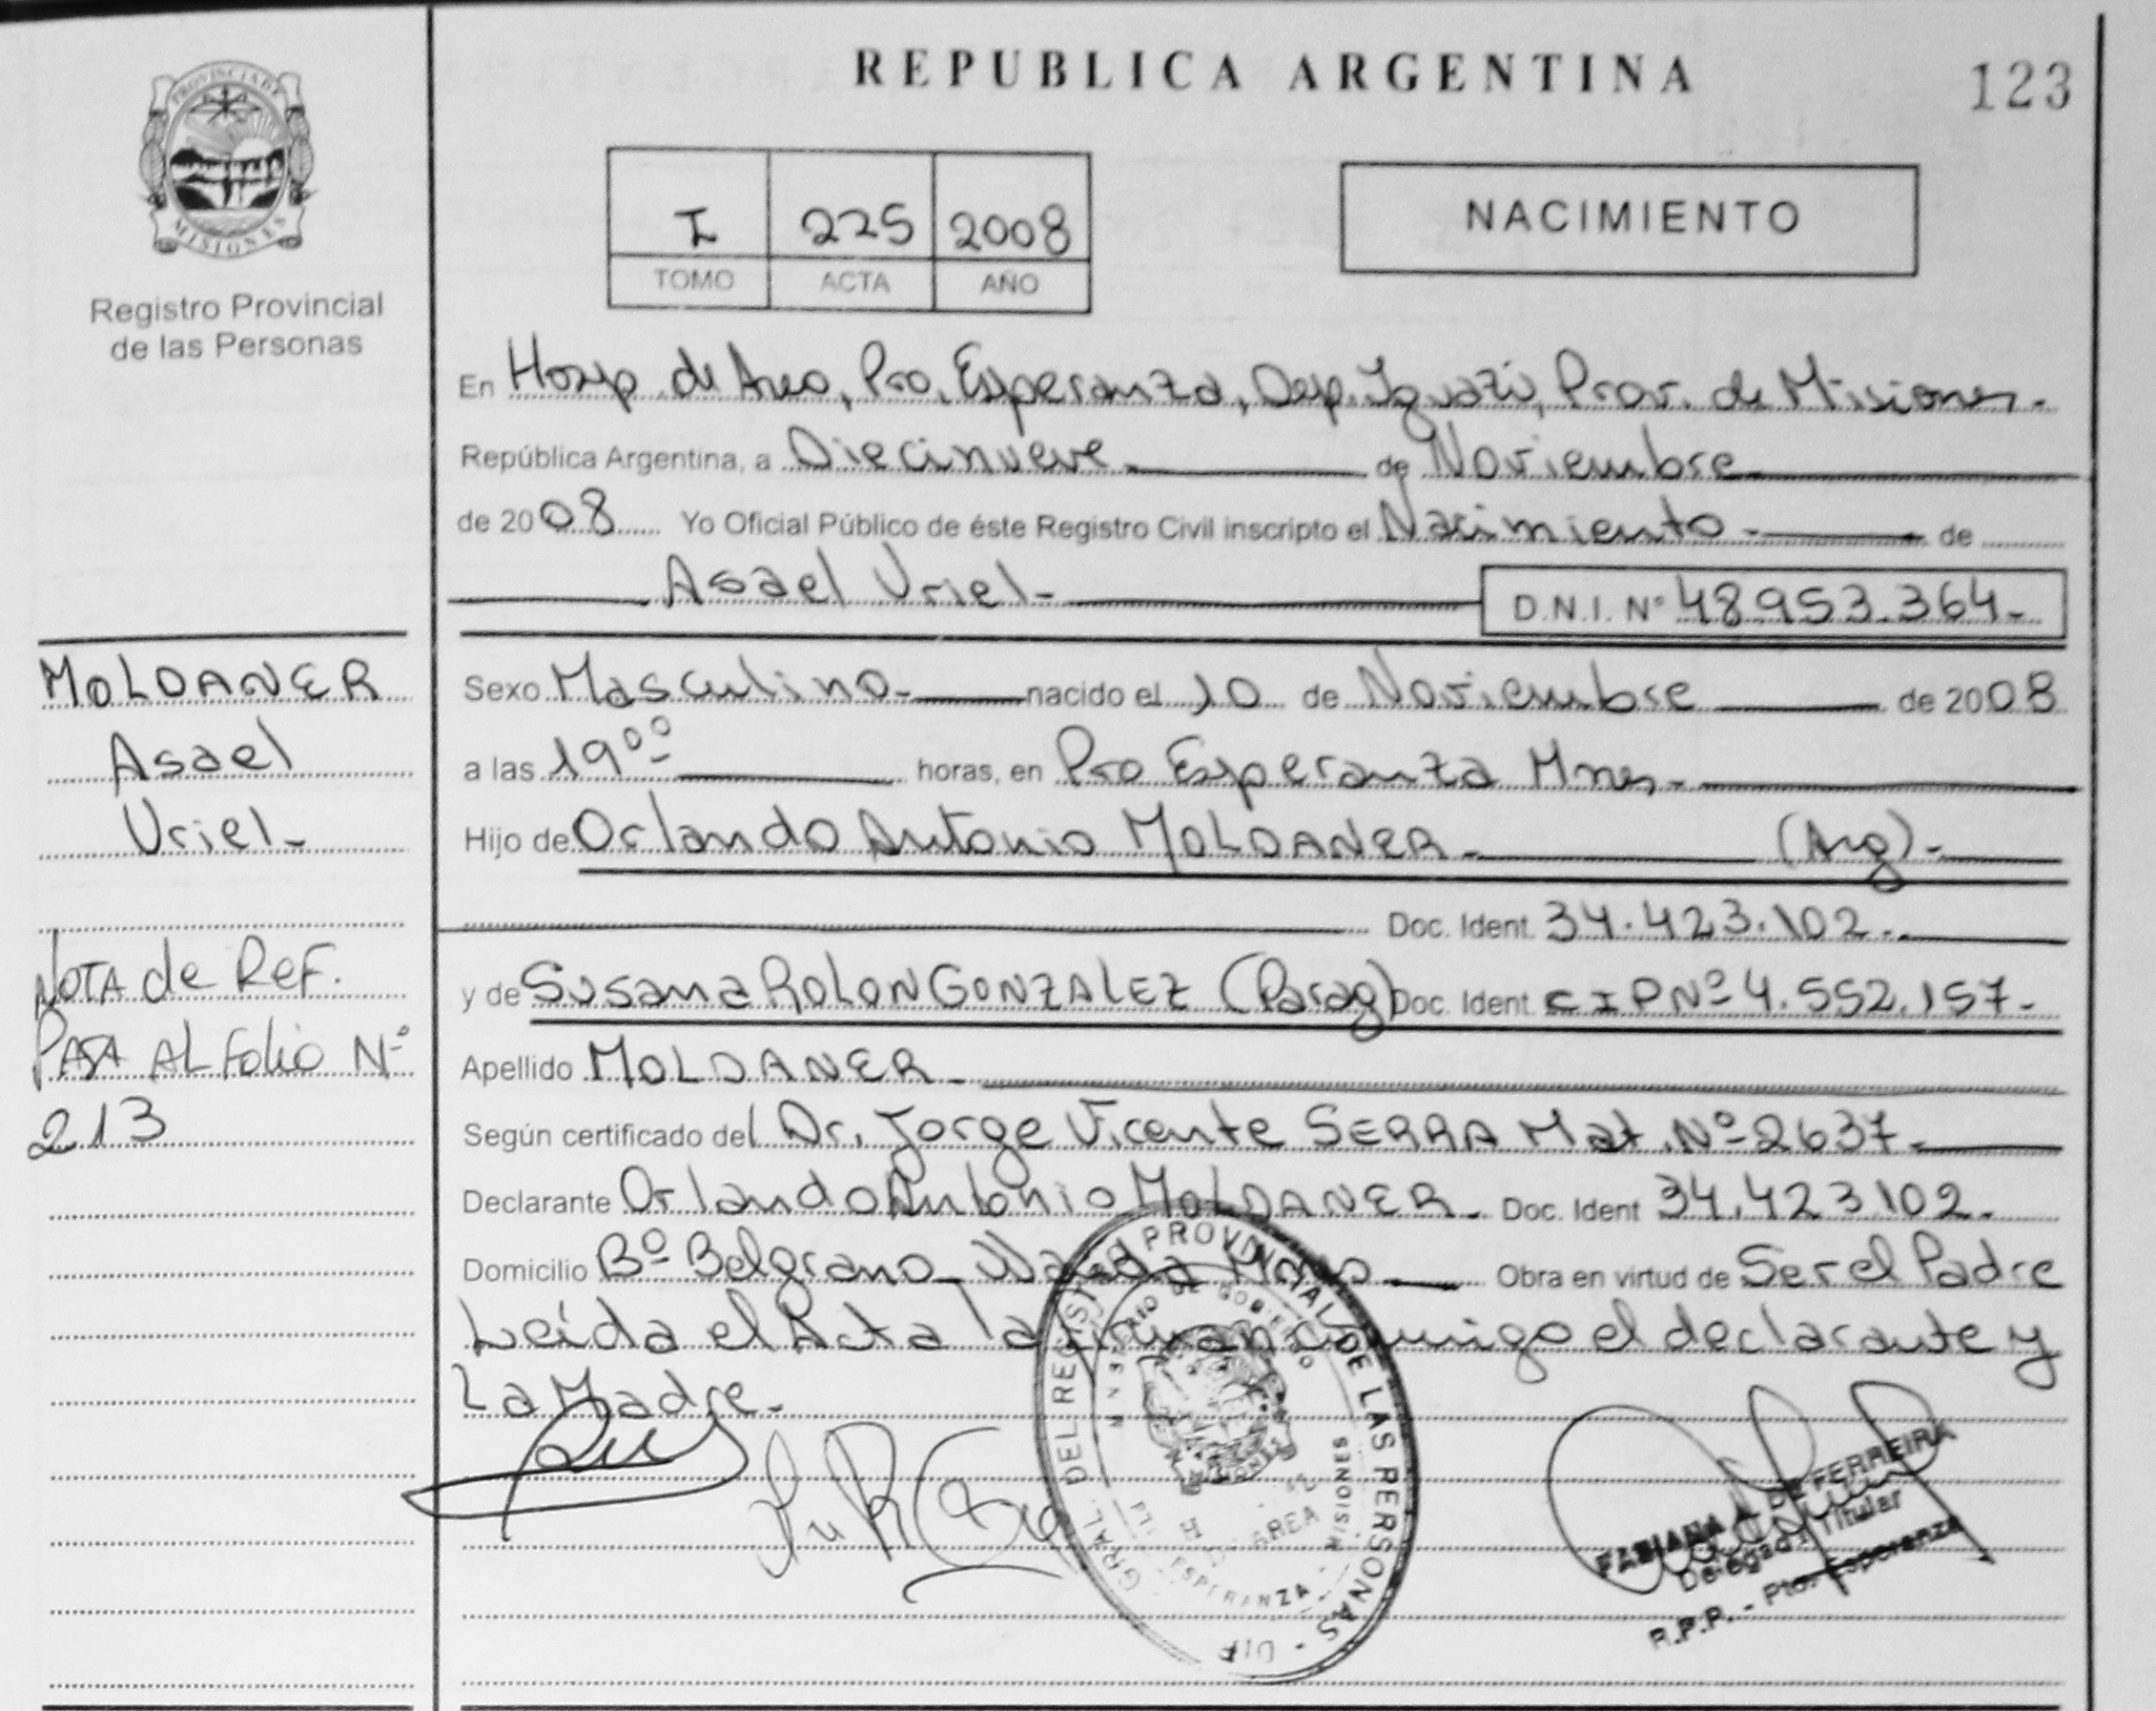 REPUBLICA ARGENTINA
123
PROVINCIA DE
MISIONES
Registro Provincial
de las Personas
I 225 2008
TOMO ACTA AÑO
NACIMIENTO
En Hosp. de Area, Pto. Esperanza, Dep. Iguazú, Prov. de Misiones.
República Argentina, a Diecinueve de Noviembre
de 2008 Yo Oficial Público de éste Registro Civil inscripto el Nacimiento - de
Asael Uriel-
D.N.I. N° 48.953.364-
MOLDANER
Asael
Uriel-
Nota de Ref.
Pasa al folio Nº
213
Sexo Masculino- nacido el 10 de Noviembre de 2008
a las 19⁰⁰ horas, en Pto Esperanza Mnes-
Hijo de Orlando Antonio MOLDANER - (Arg)-
Doc. Ident. 34.423.102.-
y de Susana ROLON GONZALEZ (Parag) Doc. Ident. CIP Nº 4.552.157.-
Apellido MOLDANER-
Según certificado del Dr. Jorge Vicente SERRA Mat. Nº 2637-
Declarante Orlando Antonio MOLDANER- Doc. Ident 34.423.102.-
Domicilio Bº Belgrano Wanda Mnes Obra en virtud de Ser el Padre
Leída el Acta la firman conmigo el declarante y
La Madre.-
GRAL. DEL REGISTRO PROVINCIAL DE LAS PERSONAS - DIR
MINISTERIO DE GOBIERNO
AREA
ESPERANZA - MISIONES
FABIANA DE FERREIRA
Delegada Titular
R.P.P. - Pto. Esperanza